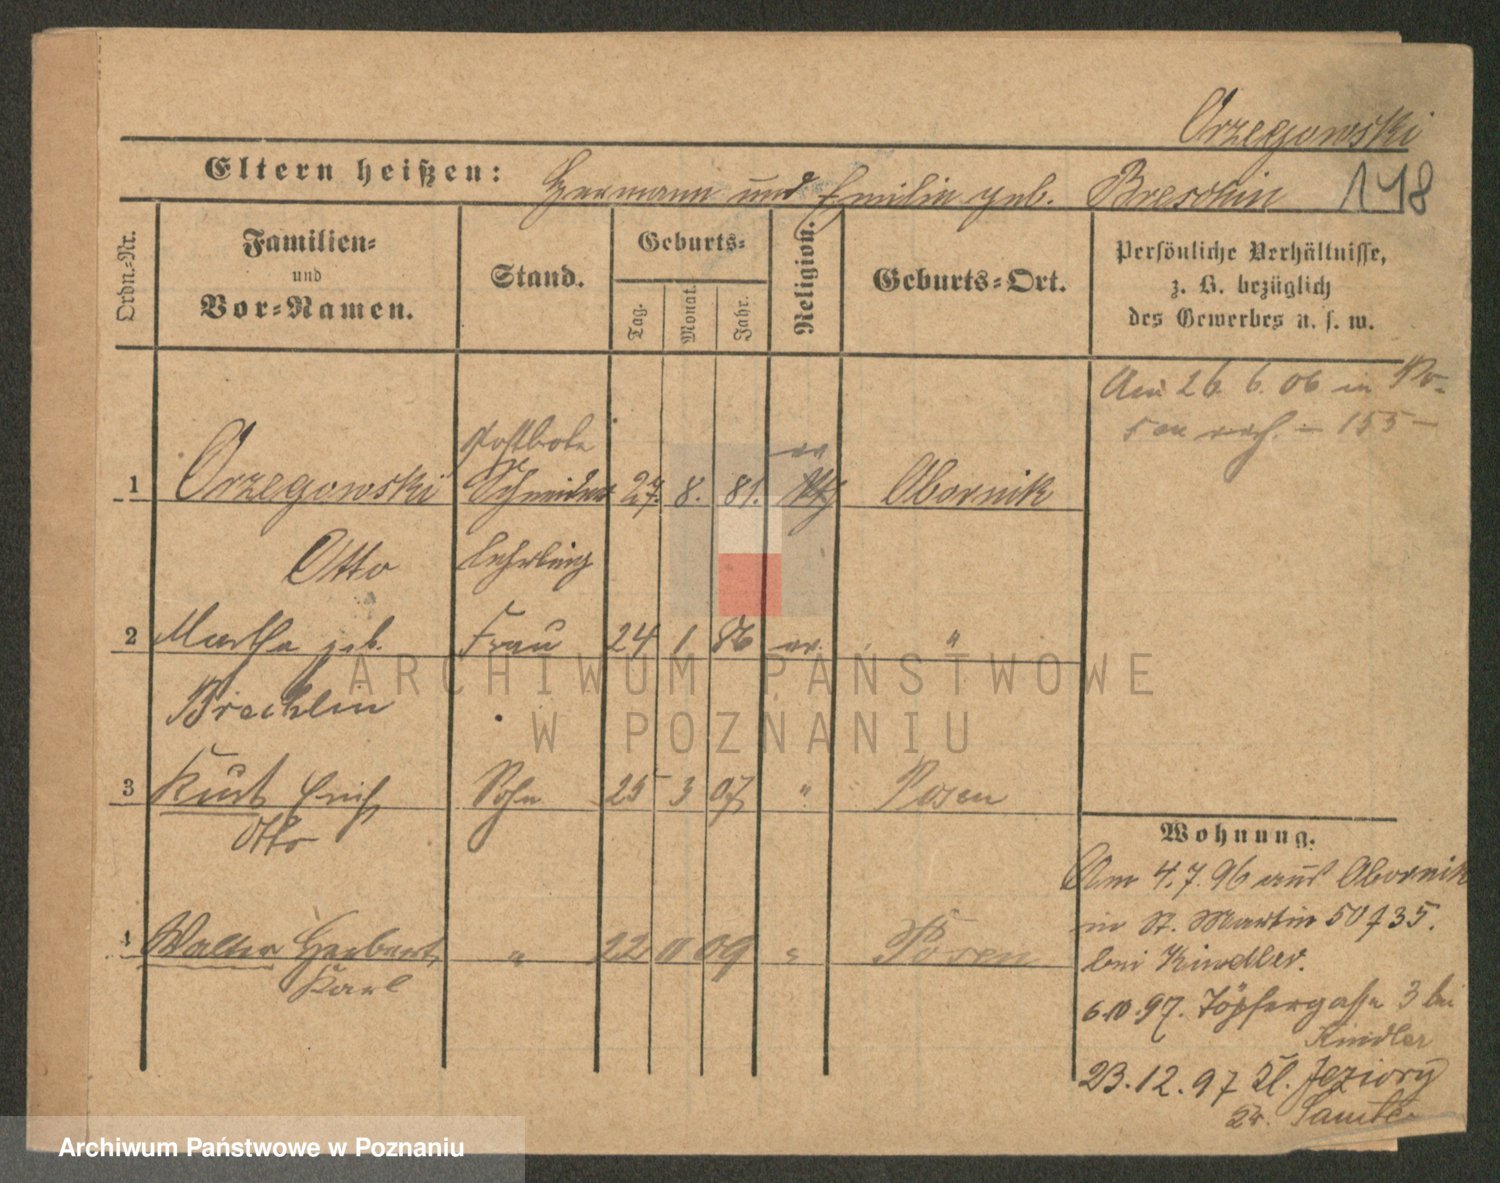 Orzegowski
Eltern heißen: Hermann und Emilie geb. Breschin 148
Ordn.-Nr.
Familien-
und
Vor-Namen.
Stand.
Geburts-
Tag.
Monat.
Jahr.
Religion.
Geburts-Ort.
Persönliche Verhältnisse,
z. B. bezüglich
des Gewerbes u. s. w.
Am 26. 6. 06 in Po-
sen - 155 -
Postbote
ev
1 Orzegowski Schneider 27. 8. 81. Obornik
Otto Lehrling
2 Martha geb. Frau 24 1 86 ev. "
Brechlin
3 Kurt Erich Sohn 25 3 07 " Posen
Otto
4 Walter Herbert " 22 11 09 " Posen
Karl
Wohnung.
Am 4.7.96 aus Obornik
in St. Martin 50/35.
bei Kindler.
6.10.97. Töpfergasse 3 bei
Kindler
23.12.97 Kl. Jeziory
Kr.
ARCHIWUM PAŃSTWOWE
W POZNANIU
Archiwum Państwowe w Poznaniu